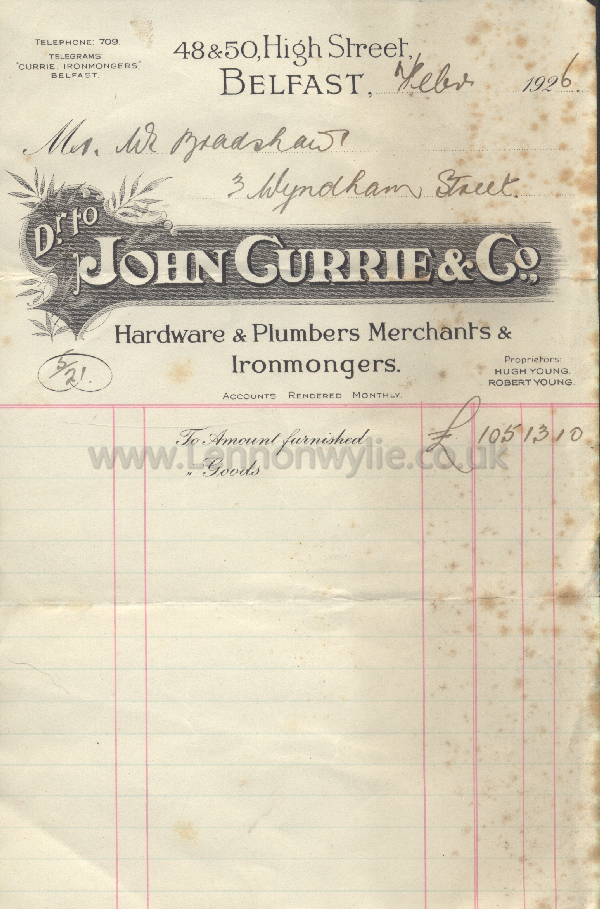 TELEPHONE: 709.
TELEGRAMS
"CURRIE, IRONMONGERS,"
BELFAST.
48 & 50, High Street,
BELFAST, Feby 1926.
Mr. Wm Bradshaw
3 Wyndham Street.
Dr. to
JOHN CURRIE & Co.,
Hardware & Plumbers Merchants &
Ironmongers.
5/21.
Proprietors:
HUGH YOUNG.
ROBERT YOUNG.
ACCOUNTS RENDERED MONTHLY.
To Amount furnished £ 105 13 10
www.Lennonwylie.co.uk
„ Goods